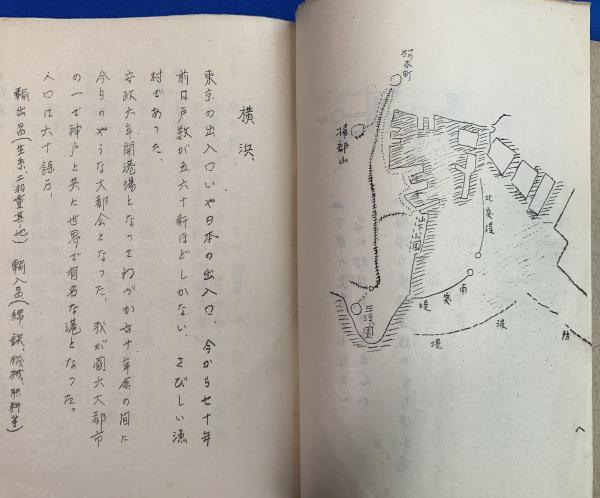 横浜
東京の出入口いや日本の出入口、今から七十年
前は戸数が五六十軒ほどしかない、さびしい漁
村であった。
安政六年開港場となってわづか七十年居の間に
今日のやうな大都会となった。我が國六大都市
の一で神戸と共に世界で有名な港となった。
人口は六十餘万、
輸出品(生糸、羽二重其他) 輸入品(綿、鉄、機械、肥料等)
桜木町
掃部山
山下公園
三渓園
北突堤
南突堤
防波堤